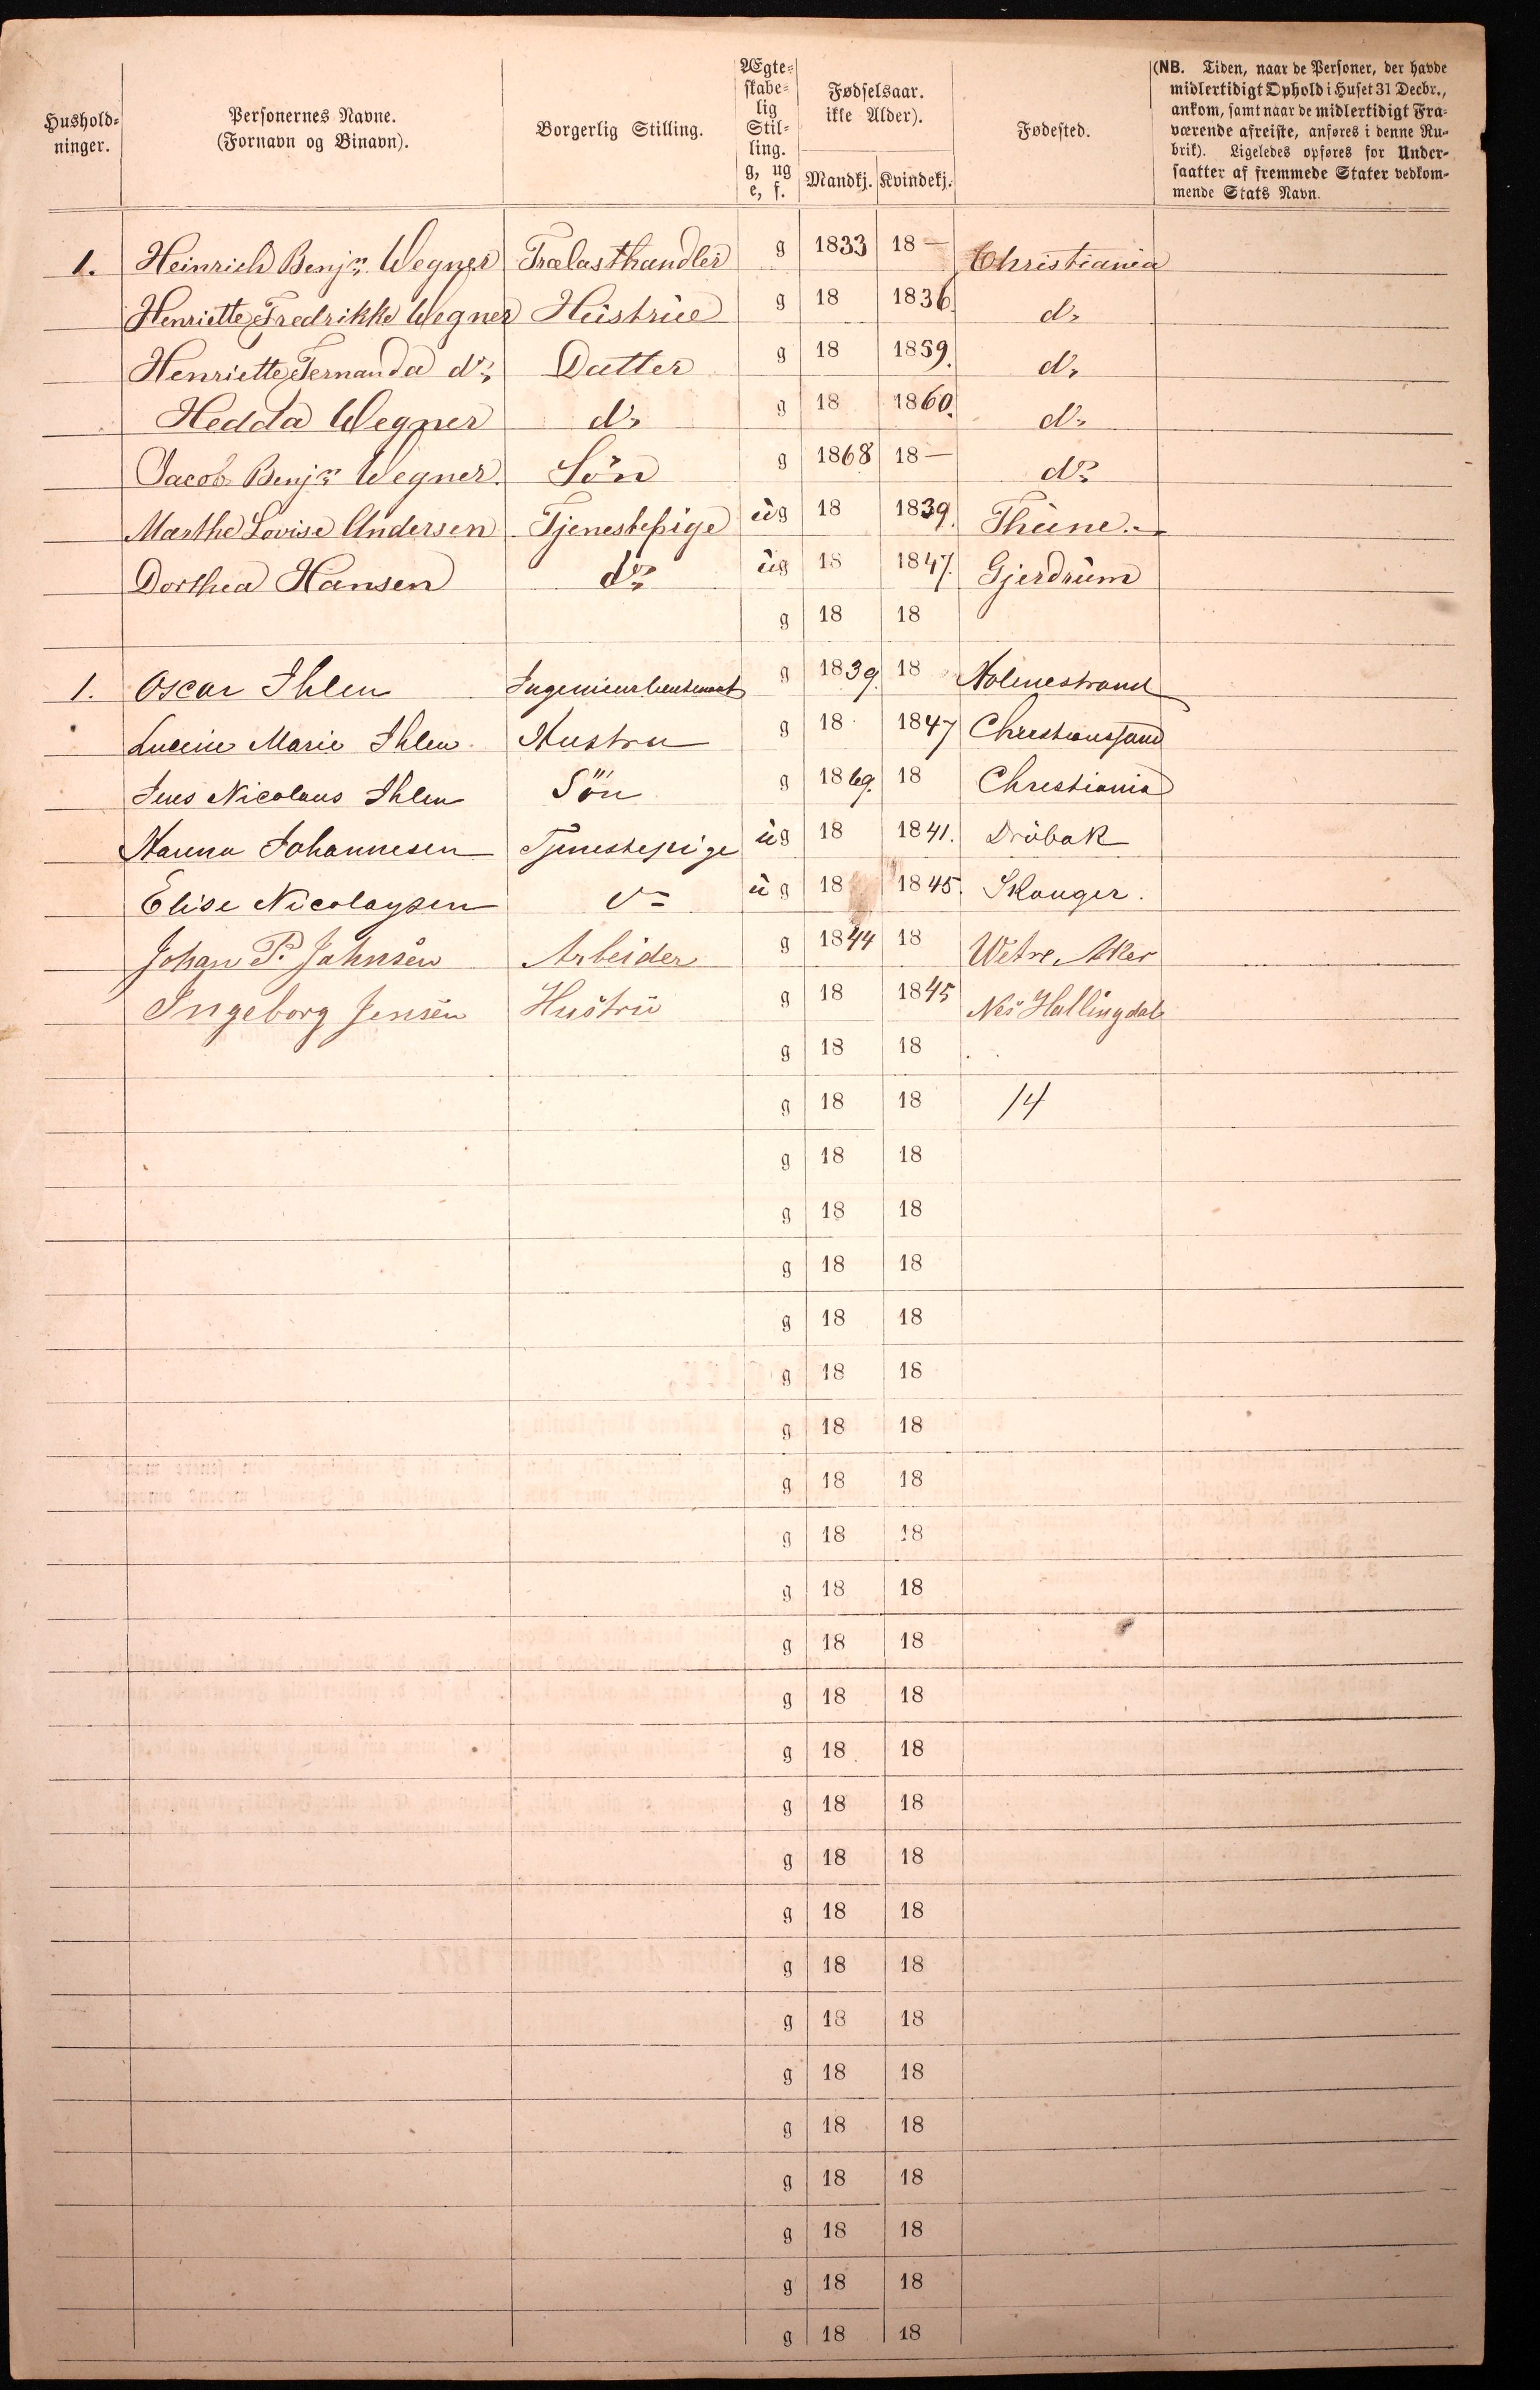 Hushold-
ninger.
Personernes Navne.
(Fornavn og Binavn).
Borgerlig Stilling.
Ægte-
skabe-
lig
Stil-
ling.
g, ug
e, f.
Fødselsaar.
ikke Alder).
Mandkj. Kvindekj.
Fødested.
(NB. Tiden, naar de Personer, der havde
midlertidigt Ophold i Huset 31 Decbr.,
ankom, samt naar de midlertidigt Fra-
værende afreiste, anføres i denne Ru-
brik). Ligeledes opføres for Under-
saatter af fremmede Stater vedkom-
mende Stats Navn.
1. Heinrich Benjn. Wegner Trælasthandler g 1833 18 — Christiania
Henriette Fredrikke Wegner Hüstrüe g 18 1836. do
Henriette Fernanda do Datter g 18 1859. do
Hedda Wegner do g 18 1860. do
Jacob Benjn Wegner. Sön g 1868 18 — do
Marthe Lovise Andersen Tjenestepige üg 18 1839. Thüne.
Dorthea Hansen do üg 18 1847. Gjerdrüm
g 18 18
1. Oscar Ihlen Ingenieurlieutenant g 1839. 18 Holmestrand
Lucine Marie Ihlen Hustru g 18 1847 Christianssand
Jens Nicolaus Ihlen Sön g 1869. 18 Christiania
Hanna Johannesen Tjenestepige üg 18 1841. Dröbak
Elise Nicolaysen do üg 18 1845. Skouger.
Johan P. Johnsen Arbeider g 1844 18 Wetre Aker
Ingeborg Jensen Hustrü g 18 1845 Nes Hallingdal
g 18 18
g 18 18 14
g 18 18
g 18 18
g 18 18
g 18 18
g 18 18
g 18 18
g 18 18
g 18 18
g 18 18
g 18 18
g 18 18
g 18 18
g 18 18
g 18 18
g 18 18
g 18 18
g 18 18
g 18 18
g 18 18
g 18 18
g 18 18
g 18 18
g 18 18